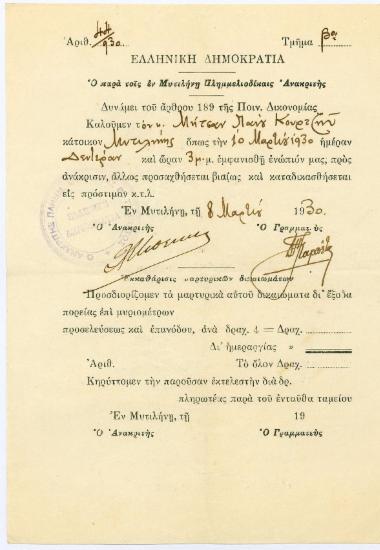 Ἀριθ. 44/930 Τμῆμα βον
ΕΛΛΗΝΙΚΗ ΔΗΜΟΚΡΑΤΙΑ
Ὁ παρὰ τοῖς ἐν Μυτιλήνῃ Πλημμελιοδίκαις Ἀνακριτὴς
Δυνάμει τοῦ ἄρθρου 189 τῆς Ποιν. Δικονομίας
Καλοῦμεν τὸν κ. Μήτσον Παν. Κουρτζῆν
κάτοικον Μυτιλήνης ὅπως τὴν 10 Μαρτίου 1930 ἡμέραν
Δευτέραν καὶ ὥραν 3 μ.μ. ἐμφανισθῇ ἐνώπιόν μας, πρὸς
ἀνάκρισιν, ἄλλως προσαχθήσεται βιαίως καὶ καταδικασθήσεται
εἰς πρόστιμον κ.τ.λ.
Ἐν Μυτιλήνῃ, τῇ 8 Μαρτίου 1930.
Ὁ Ἀνακριτὴς Ὁ Γραμματεὺς
Ἐκκαθάρισις μαρτυρικῶν δικαιωμάτων
Προσδιορίζομεν τὰ μαρτυρικὰ αὐτοῦ δικαιώματα δι᾽ ἔξοδα
πορείας ἐπὶ μυριομέτρων
προσελεύσεως καὶ ἐπανόδου, ἀνὰ δραχ. 4 = Δραχ.
Δι᾽ ἡμεραργίας »
Ἀριθ. Τὸ ὅλον Δραχ.
Κηρύττομεν τὴν παροῦσαν ἐκτελεστὴν διὰ δρ.
πληρωτέας παρὰ τοῦ ἐνταῦθα ταμείου
Ἐν Μυτιλήνῃ, τῇ 19
Ὁ Ἀνακριτὴς Ὁ Γραμματεὺς